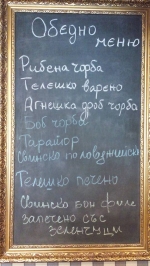 Обедно
меню
Рибена чорба
Телешко варено
Агнешка дроб чорба
Боб чорба
Таратор
Свинско половджийско
Телешко печено
Свинско бон филе
запечено със
зеленчуци